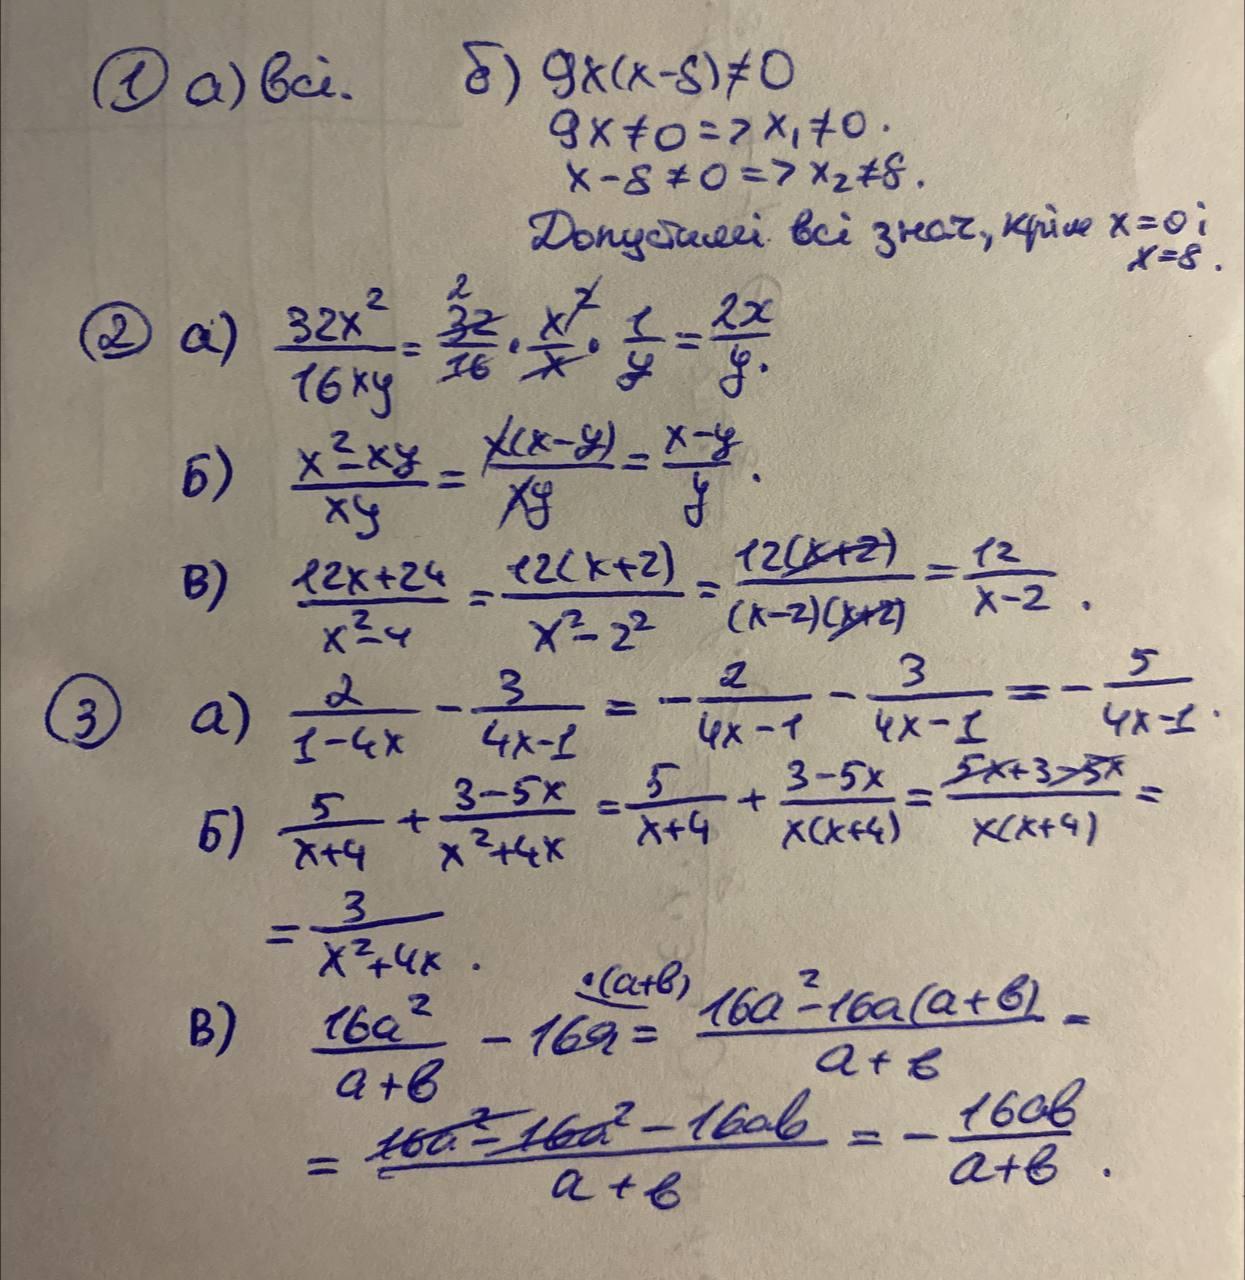 ① а) всі. б) 9x(x-8)≠0
9x≠0=>x₁≠0.
x-8≠0=>x₂≠8.
Допустимі всі знач, крім x=0 і
x=8.
② а) 32x²/16xy = 32/16 · x²/x · 1/y = 2x/y.
Б) x²-xy/xy = x(x-y)/xy = x-y/y.
В) 12x+24/x²-4 = 12(x+2)/x²-2² = 12(x+2)/(x-2)(x+2) = 12/x-2.
③ а) 2/1-4x - 3/4x-1 = -2/4x-1 - 3/4x-1 = -5/4x-1.
Б) 5/x+4 + 3-5x/x²+4x = 5/x+4 + 3-5x/x(x+4) = 5x+3-5x/x(x+4) =
= 3/x²+4x.
·(а+в)
В) 16а²/а+в - 16а = 16а²-16а(а+в)/а+в =
= 16а²-16а²-16ав/а+в = -16ав/а+в.